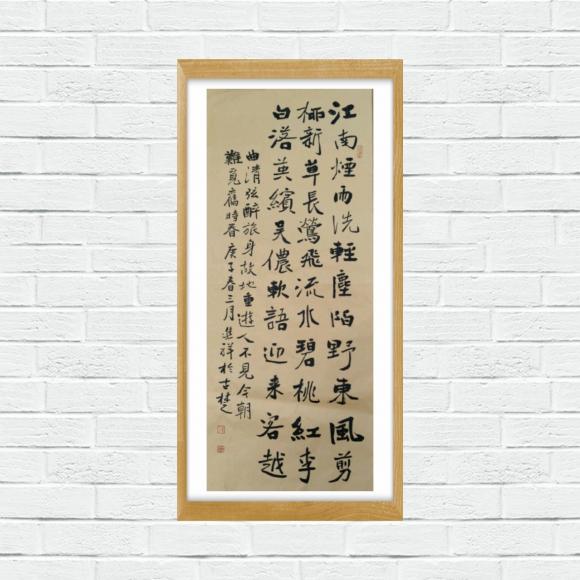 江南煙雨洗輕塵陌野東風剪
柳新草長鶯飛流水碧桃紅李
白落英繽吳儂軟語迎来客越
曲清弦醉旅身故地重遊人不見今朝
難覓舊時春庚子春三月進祥於古楚